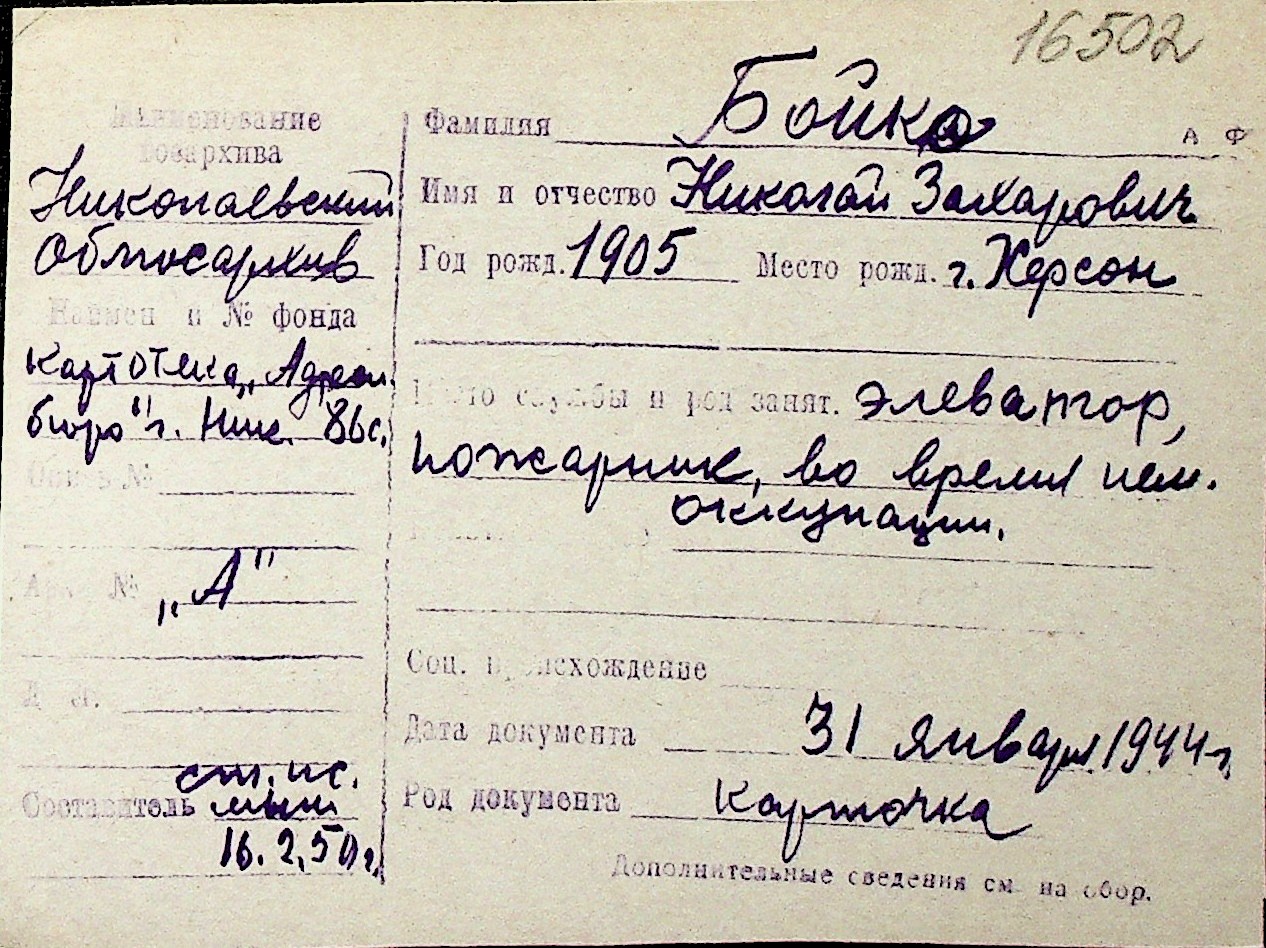 16502
Наименование
госархива
Николаевский
Облгосархив
Наимен и № фонда
картотека „Адресн.
бюро" г. Ник. 86с.
Опись №
Арх. №
„А"
Составитель
16.2.50 г.
Фамилия Бойко
А Ф
Имя и отчество Николай Захарович
Год рожд. 1905 Место рожд. г. Херсон
Место службы и род занят. элеватор,
пожарник, во время нем.
оккупации.
Соц. происхождение
Дата документа 31 января 1944 г.
Род документа карточка
Дополнительные сведения см на обор.